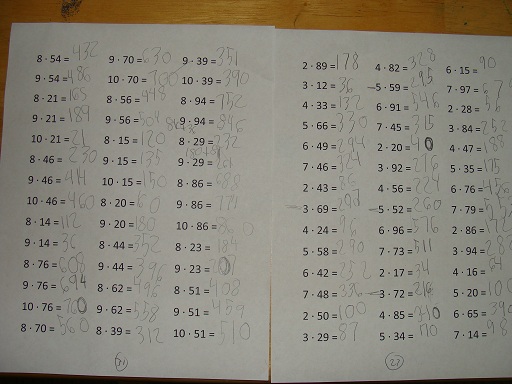 8 · 54 = 432 9 · 70 = 630 9 · 39 = 351
9 · 54 = 486 10 · 70 = 700 10 · 39 = 390
8 · 21 = 8 · 56 = 448 8 · 94 = 752
9 · 21 = 189 9 · 56 = 504 9 · 94 = 846
10 · 21 = 21 8 · 15 = 120 8 · 29 = 232
8 · 46 = 230 9 · 15 = 135 9 · 29 =
9 · 46 = 414 10 · 15 = 150 8 · 86 = 688
10 · 46 = 460 8 · 20 = 9 · 86 =
8 · 14 = 112 9 · 20 = 180 10 · 86 =
9 · 14 = 36 8 · 44 = 352 8 · 23 = 184
8 · 76 = 608 9 · 44 = 396 9 · 23 =
9 · 76 = 694 8 · 62 = 496 8 · 51 = 408
10 · 76 = 760 9 · 62 = 558 9 · 51 = 459
8 · 70 = 560 8 · 39 = 312 10 · 51 = 510
21
2 · 89 = 178 4 · 82 = 328 6 · 15 = 90
3 · 12 = 36 5 · 59 = 295 7 · 97 =
4 · 33 = 132 6 · 91 = 546 2 · 28 = 56
5 · 66 = 330 7 · 45 = 315 3 · 84 = 252
6 · 49 = 294 2 · 20 = 40 4 · 47 = 188
7 · 46 = 3 · 92 = 276 5 · 35 = 175
2 · 43 = 86 4 · 56 = 224 6 · 76 = 456
3 · 69 = 5 · 52 = 260 7 · 79 =
4 · 24 = 96 6 · 96 = 576 2 · 86 = 172
5 · 58 = 290 7 · 73 = 511 3 · 94 =
6 · 42 = 252 2 · 17 = 34 4 · 16 = 64
7 · 48 = 336 3 · 72 = 216 5 · 20 = 100
2 · 50 = 100 4 · 85 = 340 6 · 65 = 390
3 · 29 = 87 5 · 34 = 170 7 · 14 = 98
22